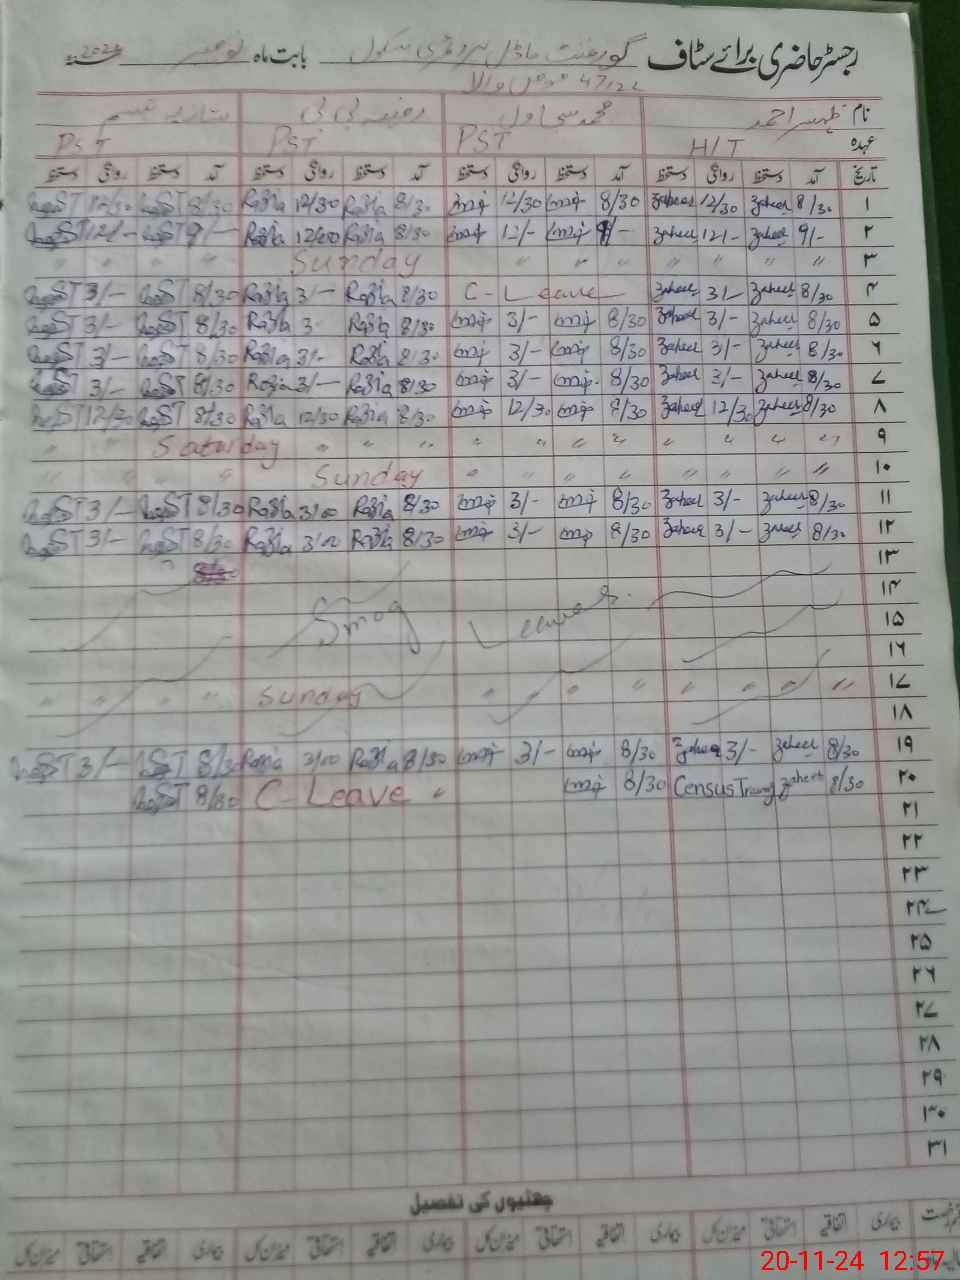 رجسٹر حاضری برائے سٹاف گورنمنٹ ماڈل پرائمری سکول بابت ماہ نومبر 2024
47/22
نام ظہیر احمد محمد سجاول رضیہ بی بی
عہدہ H/T PST PST PST
تاریخ آمد دستخط روانگی دستخط آمد دستخط روانگی دستخط آمد دستخط روانگی دستخط آمد دستخط روانگی دستخط
۱ 8/30 Zaheer 12/30 Zaheer 8/30 12/30 8/30 Razia 12/30 Razia 8/30 12/30
۲ 9/- Zaheer 12/- Zaheer 9/- 12/- 8/30 Razia 12/00 Razia 9/- 12/-
۳ " " " " " " " Sunday " " " "
۴ 8/30 Zaheer 3/- Zaheer C-Leave 8/30 Razia 3/- Razia 8/30 3/-
۵ 8/30 Zaheer 3/- Zaheer 8/30 3/- 8/30 Razia 3 Razia 8/30 3/-
۶ 8/30 Zaheer 3/- Zaheer 8/30 3/- 8/30 Razia 3/- Razia 8/30 3/-
۷ 8/30 Zaheer 3/- Zaheer 8/30 3/- 8/30 Razia 3/- Razia 8/30 3/-
۸ 8/30 Zaheer 12/30 Zaheer 8/30 12/30 8/30 Razia 12/30 Razia 8/30 12/30
۹ " " " " " " " " " " Saturday " "
۱۰ " " " " " " " " Sunday " " " "
۱۱ 8/30 Zaheer 3/- Zaheer 8/30 3/- 8/30 Razia 3/00 Razia 8/30 3/-
۱۲ 8/30 Zaheer 3/- Zaheer 8/30 3/- 8/30 Razia 3/00 Razia 8/30 3/-
۱۳
۱۴
Smog Leaves.
۱۵
۱۶
۱۷ " " " " " " " Sunday " " " "
۱۸
۱۹ 8/30 Zaheer 3/- Zaheer 8/30 3/- 8/30 Razia 3/00 Razia 8/30 3/-
۲۰ 8/30 Zaheer Census 8/30 " C-Leave 8/30
۲۱
۲۲
۲۳
۲۴
۲۵
۲۶
۲۷
۲۸
۲۹
۳۰
۳۱
چھٹیوں کی تفصیل
بیماری اتفاقیہ استحقاقی میزان کل بیماری اتفاقیہ استحقاقی میزان کل بیماری اتفاقیہ استحقاقی میزان کل بیماری اتفاقیہ استحقاقی میزان کل
20-11-24 12:57